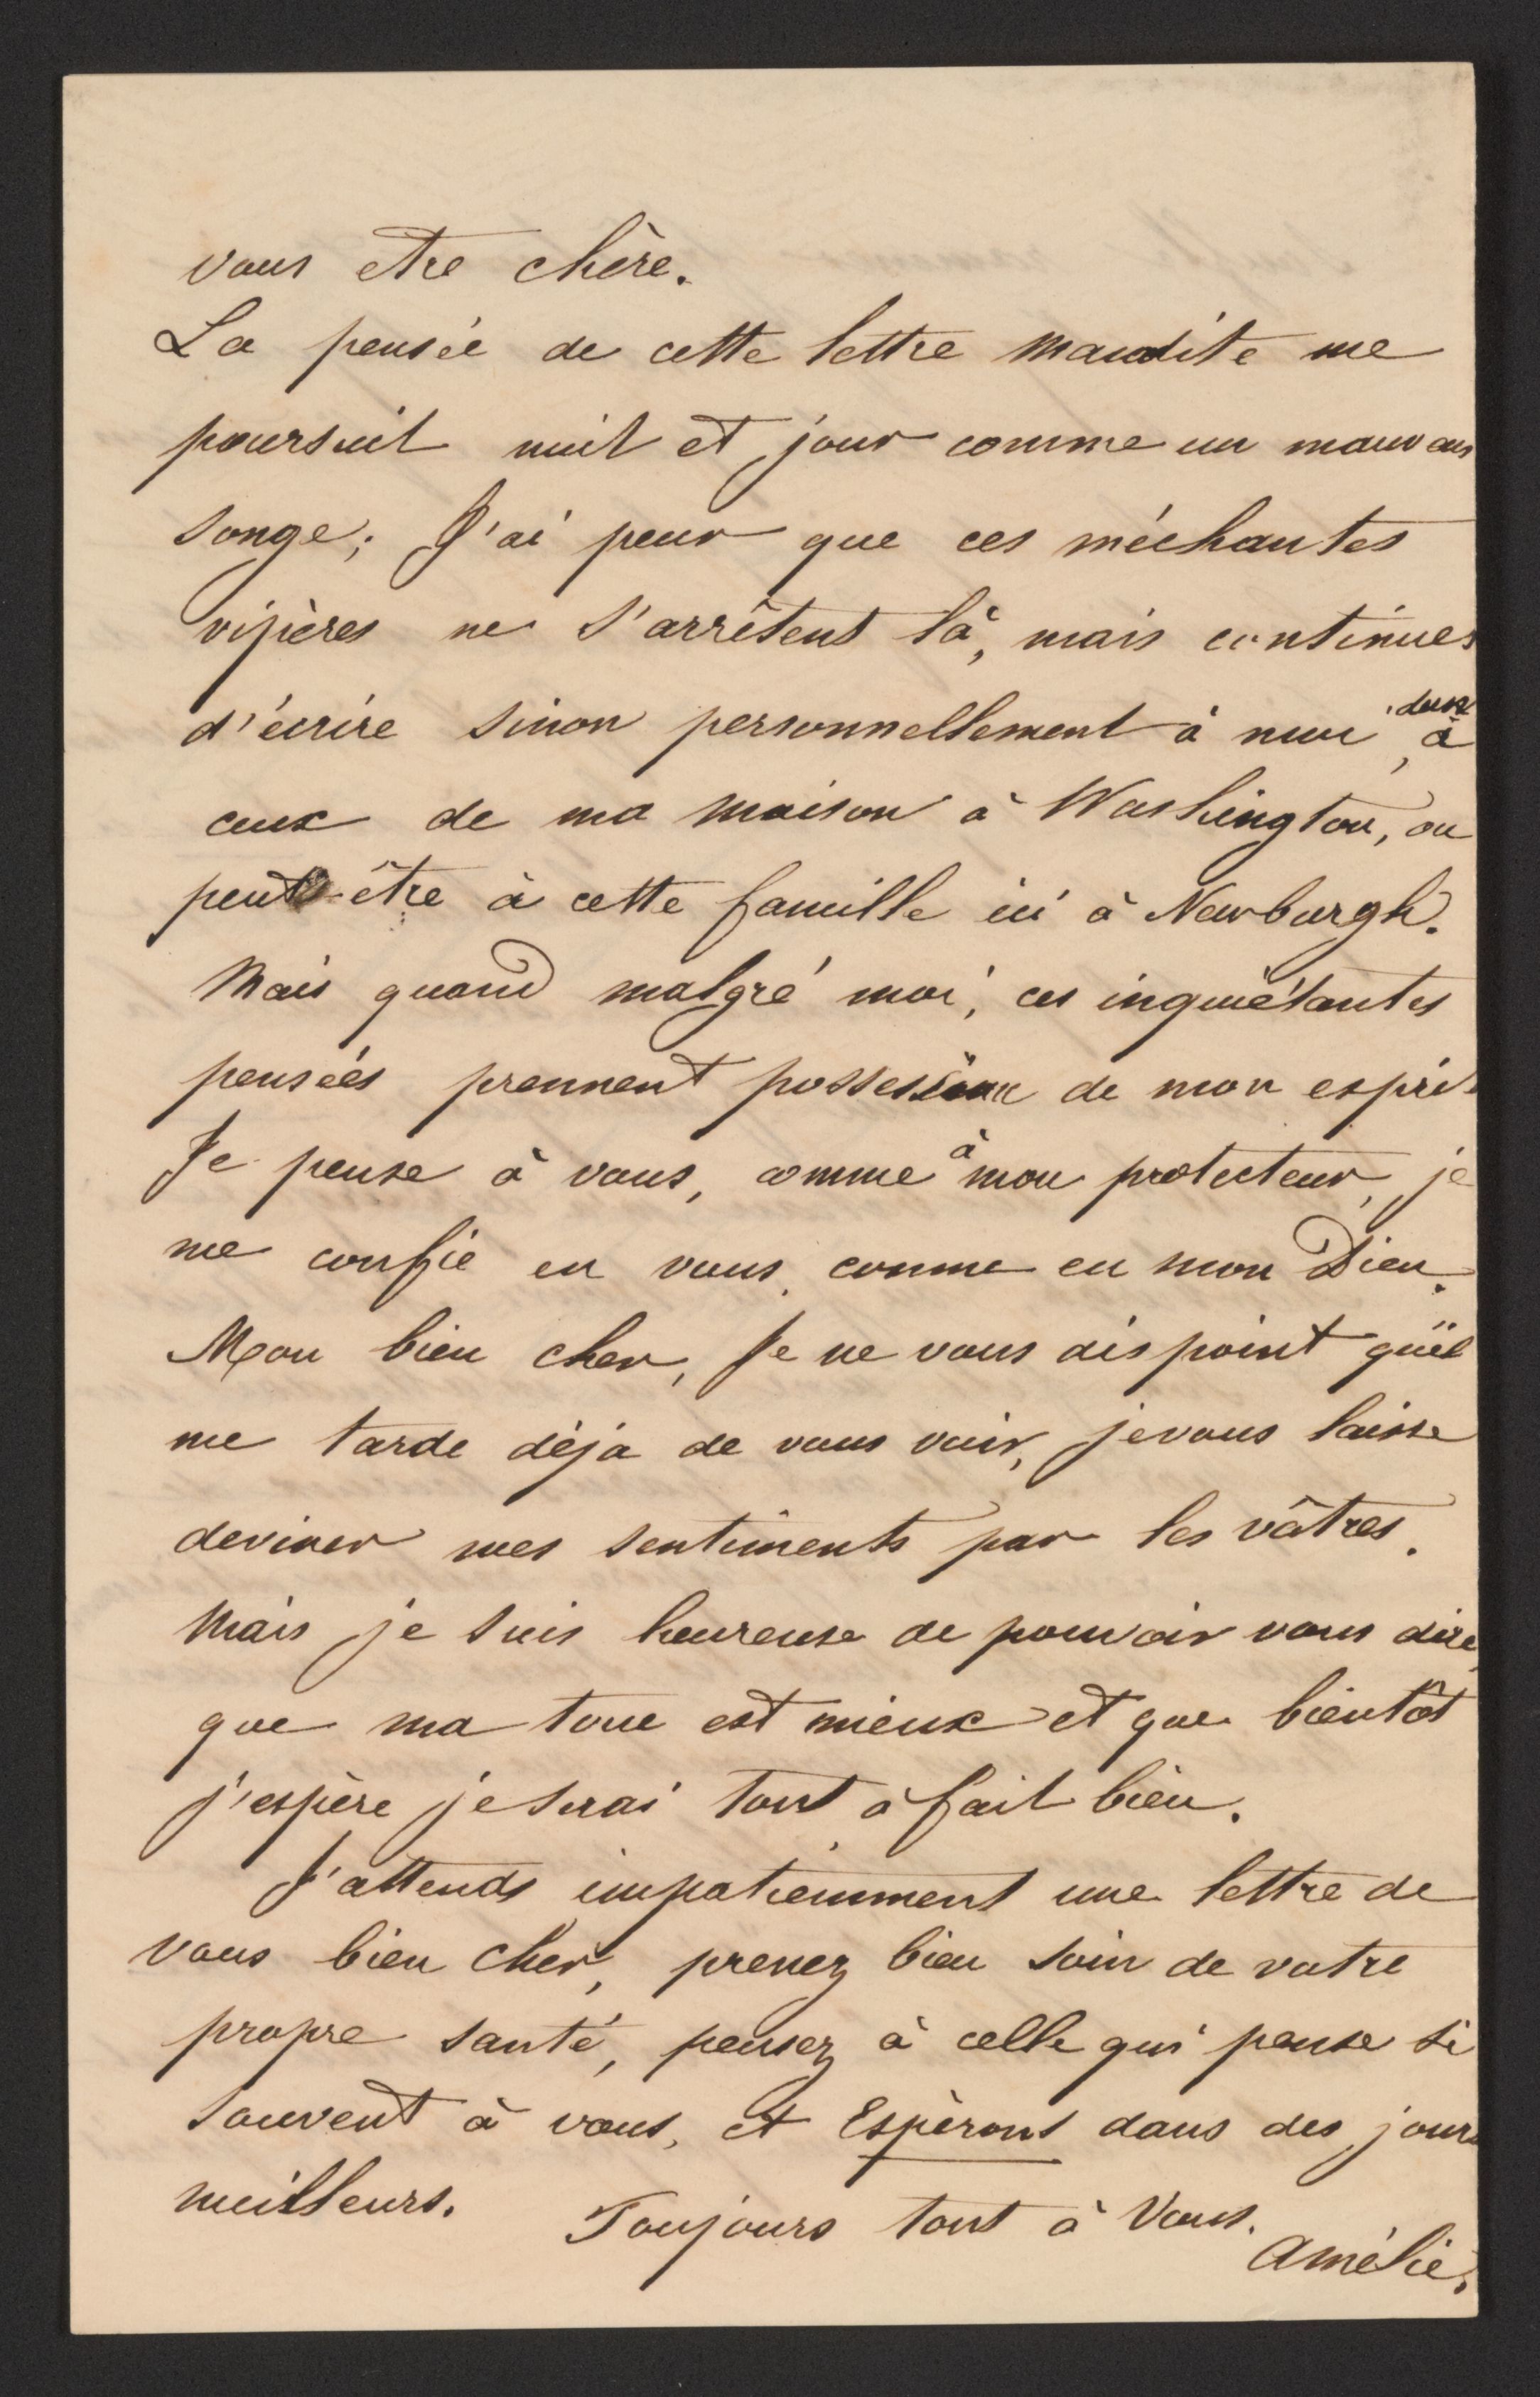 vous etre chère.
La pensée de cette lettre maudite me
poursuit nuit et jour comme un mauvais
songe; J'ai peur que ces méchantes
vipères ne s'arrêtent là, mais continues
d'écrire sinon personnellement à moi, à
ceux de ma maison à Washington, ou
peut-être à cette famille ici à Newburgh.
Mais quand malgré moi, ces inquiétantes
pensées prennent possession de mon esprit
Je pense à vous, comme à mon protecteur, je
me confie en vous, comme en mon Dieu.
Mon bien cher, Je ne vous dis point qu'il
me tarde déja de vous voir, je vous laisse
deviner mes sentiments par les vôtres.
Mais je suis heureuse de pouvoir vous dire
que ma toue est mieux et que bientôt
j'espère je serai tout à fait bien.
J'attends impatiemment une lettre de
vous bien cher, prenez bien soin de votre
propre santé, pensez à celle qui pense si
souvent à vous, et Espèrons dans des jours
meilleurs. Toujours tout à Vous.
Amélie.